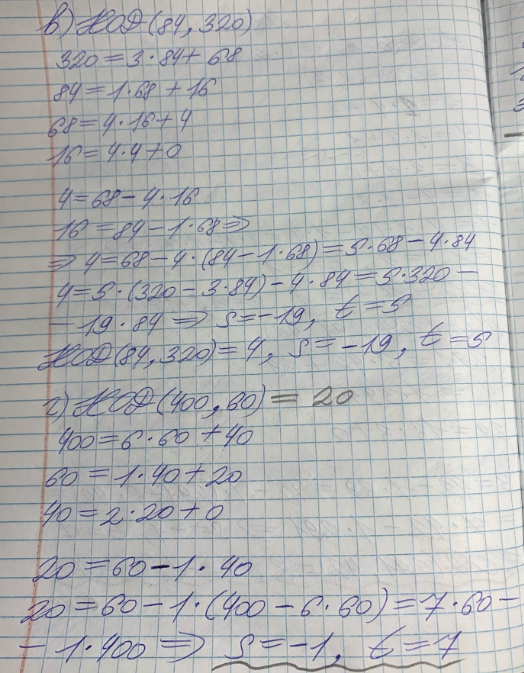 в) НОД (84, 320)
320 = 3·84 + 68
84 = 1·68 + 16
68 = 4·16 + 4
16 = 4·4 + 0
4 = 68 - 4·16
16 = 84 - 1·68 ⇒
⇒ 4 = 68 - 4·(84 - 1·68) = 5·68 - 4·84
4 = 5·(320 - 3·84) - 4·84 = 5·320 -
- 19·84 ⇒ s = -19, t = 5
НОД (84, 320) = 4, s = -19, t = 5
г) НОД (400, 60) = 20
400 = 6·60 + 40
60 = 1·40 + 20
40 = 2·20 + 0
20 = 60 - 1·40
20 = 60 - 1·(400 - 6·60) = 7·60 -
- 1·400 ⇒ s = -1, t = 7